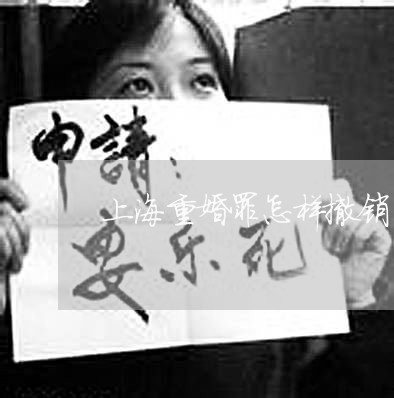 申請:
上海重婚罪怎样撤销
要乐死